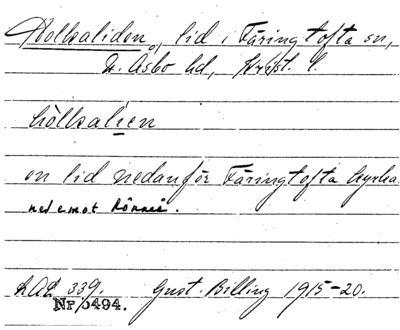 Holkaliden, lid i Färingtofta sn,
N. Åsbo hd, Krist. l.
hòlkalien
en lid nedanför Färingtofta kyrka
ned emot Rönneå.
LAL 339. Gust. Billing 1915-20.
NF/5494.